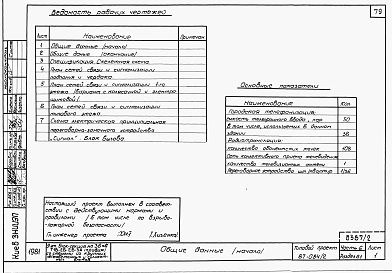 79
Ведомость рабочих чертежей
Лист
Наименование
Примечан
1 Общие данные /начало/
2 Общие данные /окончание/
3 Спецификация. Скелетная схема
4 План сетей связи и сигнализации
подвала и чердака
5 План сетей связи и сигнализации 1-го
этажа
6 План сетей связи и сигнализации
типового этажа
7 Схема электрическая принципиальная
переговорно-замочного устройства
Блок вызова
Основные показатели
Наименование
Кол.
Городская телефонизация:
емкость телефонного ввода, пар
50
В том числе, используемых в данном
здании
36
Радиотрансляция:
количество абонентских точек
108
количество телевизионных антенн
1
Переговорное устройство шт./квартир
1/36
Настоящий проект выполнен в соответ-
ствии с действующими нормами и
правилами / в том числе по взрыво-
пожарной безопасности/
Гл. инженер проекта
КиевЗНИИЭП
1981
Общие данные /начало/
8387/2
Типовой проект
87-084/2
Часть 6
Раздел 6.1
Лист
1